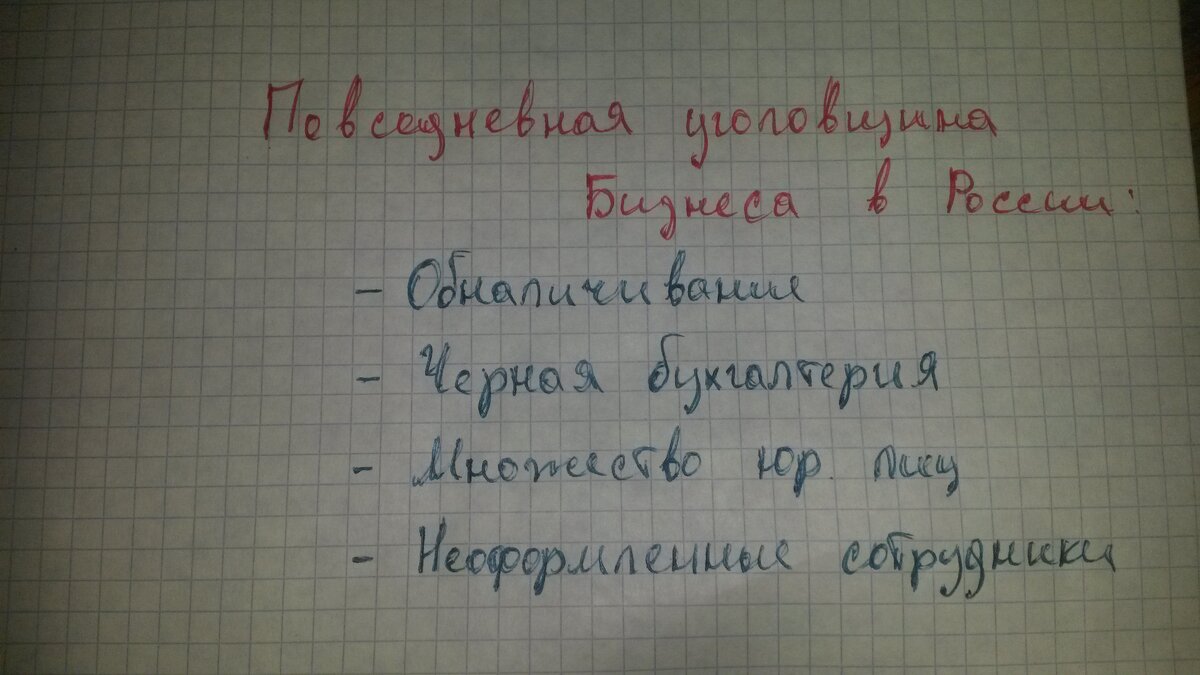 Повседневная уголовщина
Бизнеса в России:
- Обналичивание
- Черная бухгалтерия
- Множество юр. лиц
- Неоформленные сотрудники